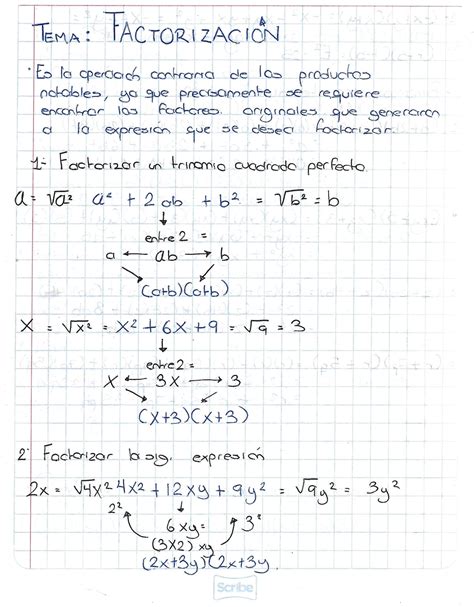 TEMA: FACTORIZACIÓN
• Es la operación contraria de los productos
notables, ya que precisamente se requiere
encontrar los factores originales que generaron
a la expresión que se desea factorizar.
1- Factorizar un trinomio cuadrado perfecto
a = √a² a² + 2ab + b² = √b² = b
↓
entre 2 =
a ← ab → b
↘ ↙
(a+b)(a+b)
X = √x² = x² + 6x + 9 = √9 = 3
↓
entre 2 =
X ← 3x → 3
↘ ↙
(x+3)(x+3)
2- Factorizar la sig. expresión
2x = √4x² 4x² + 12xy + 9y² = √9y² = 3y²
2² ↓ 3²
6xy =
(3x2) xy
(2x+3y)(2x+3y
Scribe